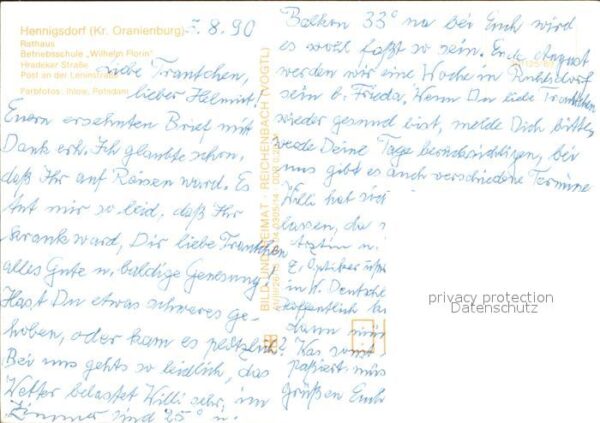 Hennigsdorf (Kr. Oranienburg)
Rathaus
Betriebsschule „Wilhelm Florin“
Hradeker Straße
Post an der Leninstraße
Farbfotos: Ihlow, Potsdam
7.8.90
Liebe Trautchen,
lieber Helmut!
Euern ersehnten Brief mit
Dank erh. Ich glaubte schon,
daß Ihr auf Reisen ward. Es
tut mir so leid, daß Ihr
krank ward, Dir liebe Trautchen
alles Gute u. baldige Genesung!
Hast Du etwas schweres ge-
hoben, oder kam es plötzlich?
Bei uns gehts so leidlich, das
Wetter belastet Willi sehr, im
Zimmer sind 25° u.
BILD UND HEIMAT · REICHENBACH (VOGTL)
Balkon 33° na bei Euch wird
es wohl fast so sein. Ende August
werden wir eine Woche in Ruhlsdorf
sein b. Frieda. Wenn Du liebe Trautchen
wieder gesund bist, melde Dich bitte,
werde Deine Tage berücksichtigen, bei
uns gibt es auch verschiedene Termine
Willi hat
lassen, da
Ärztin u.
Z. Optiker
in W. Deutschl
hoffentlich
dann
Was sonst
passiert
grüßen Euch
privacy protection
Datenschutz